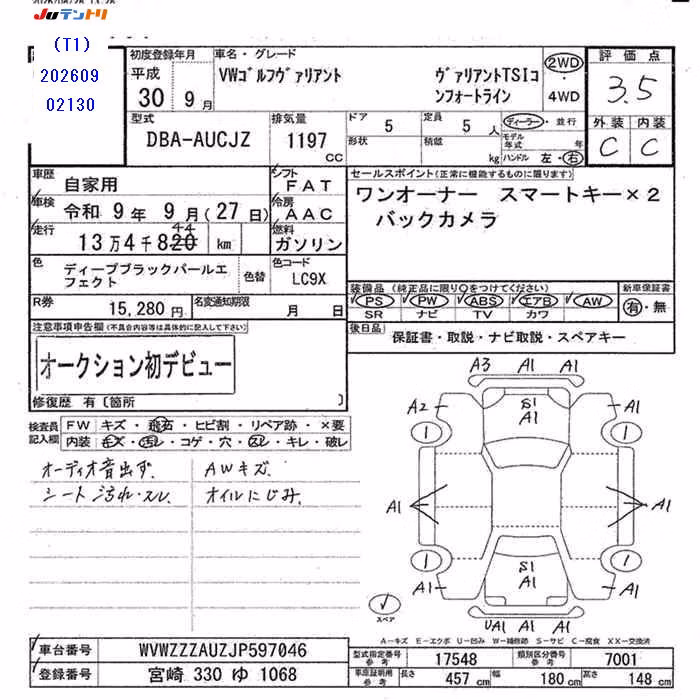 Juテントリ
(T1)
202609
02130
初度登録年月
平成
30 9月
車名・グレード
VWゴルフヴァリアント ヴァリアントTSIコ
ンフォートライン
2WD
・
4WD
評価点
3.5
外装 内装
C C
型式
DBA-AUCJZ
排気量
1197
CC
ドア
5
形状
定員
5 人
積載
kg
ディーラー・並行
モデル年式 年
ハンドル 左・右
車歴
自家用
シフト
FAT
車検
令和 9年 9月(27日)
冷房
AAC
走行
44
13万4千820 km
燃料
ガソリン
セールスポイント(正常に機能するものに限ります)
ワンオーナー スマートキー×2
バックカメラ
色
ディープブラックパールエ
フェクト
色替
色コード
LC9X
R券
15,280円
名変通知期限
月 日
装備品(純正品に限り○をつけてください)
PS PW ABS エアB AW
SR ナビ TV カワ
新車保証書
有・無
後日品
保証書・取説・ナビ取説・スペアキー
注意事項申告欄(不具合内容等は具体的に記入して下さい)
オークション初デビュー
修復歴 有〔箇所 〕
検査員
記入欄
FW キズ・飛石・ヒビ割・リペア跡・×要
内装 キズ・汚レ・コゲ・穴・スレ・キレ・破レ
オーディオ音出ず.
シート汚れ・スレ
AWキズ.
オイルにじみ.
A3 A1 A1
A2 S1 A1
A1
1 1
A1 A1
1 1
A1 S1 A1
A1
UA1 A1 A1
スペア
A-キズ E-エクボ U-凹み W-補修跡 S-サビ C-腐食 XX-交換済
車台番号
WVWZZZAUZJP597046
登録番号
宮崎 330 ゆ 1068
型式指定番号
参考
17548
類別区分番号
参考
7001
車車証明用
参考
長さ 457 cm 幅 180 cm 高さ 148 cm